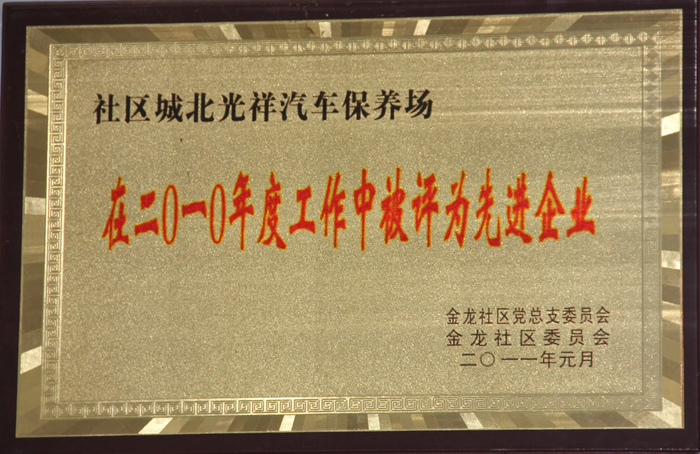 社区城北光祥汽车保养场
在二〇一〇年度工作中被评为先进企业
金龙社区党总支委员会
金龙社区委员会
二〇一一年元月